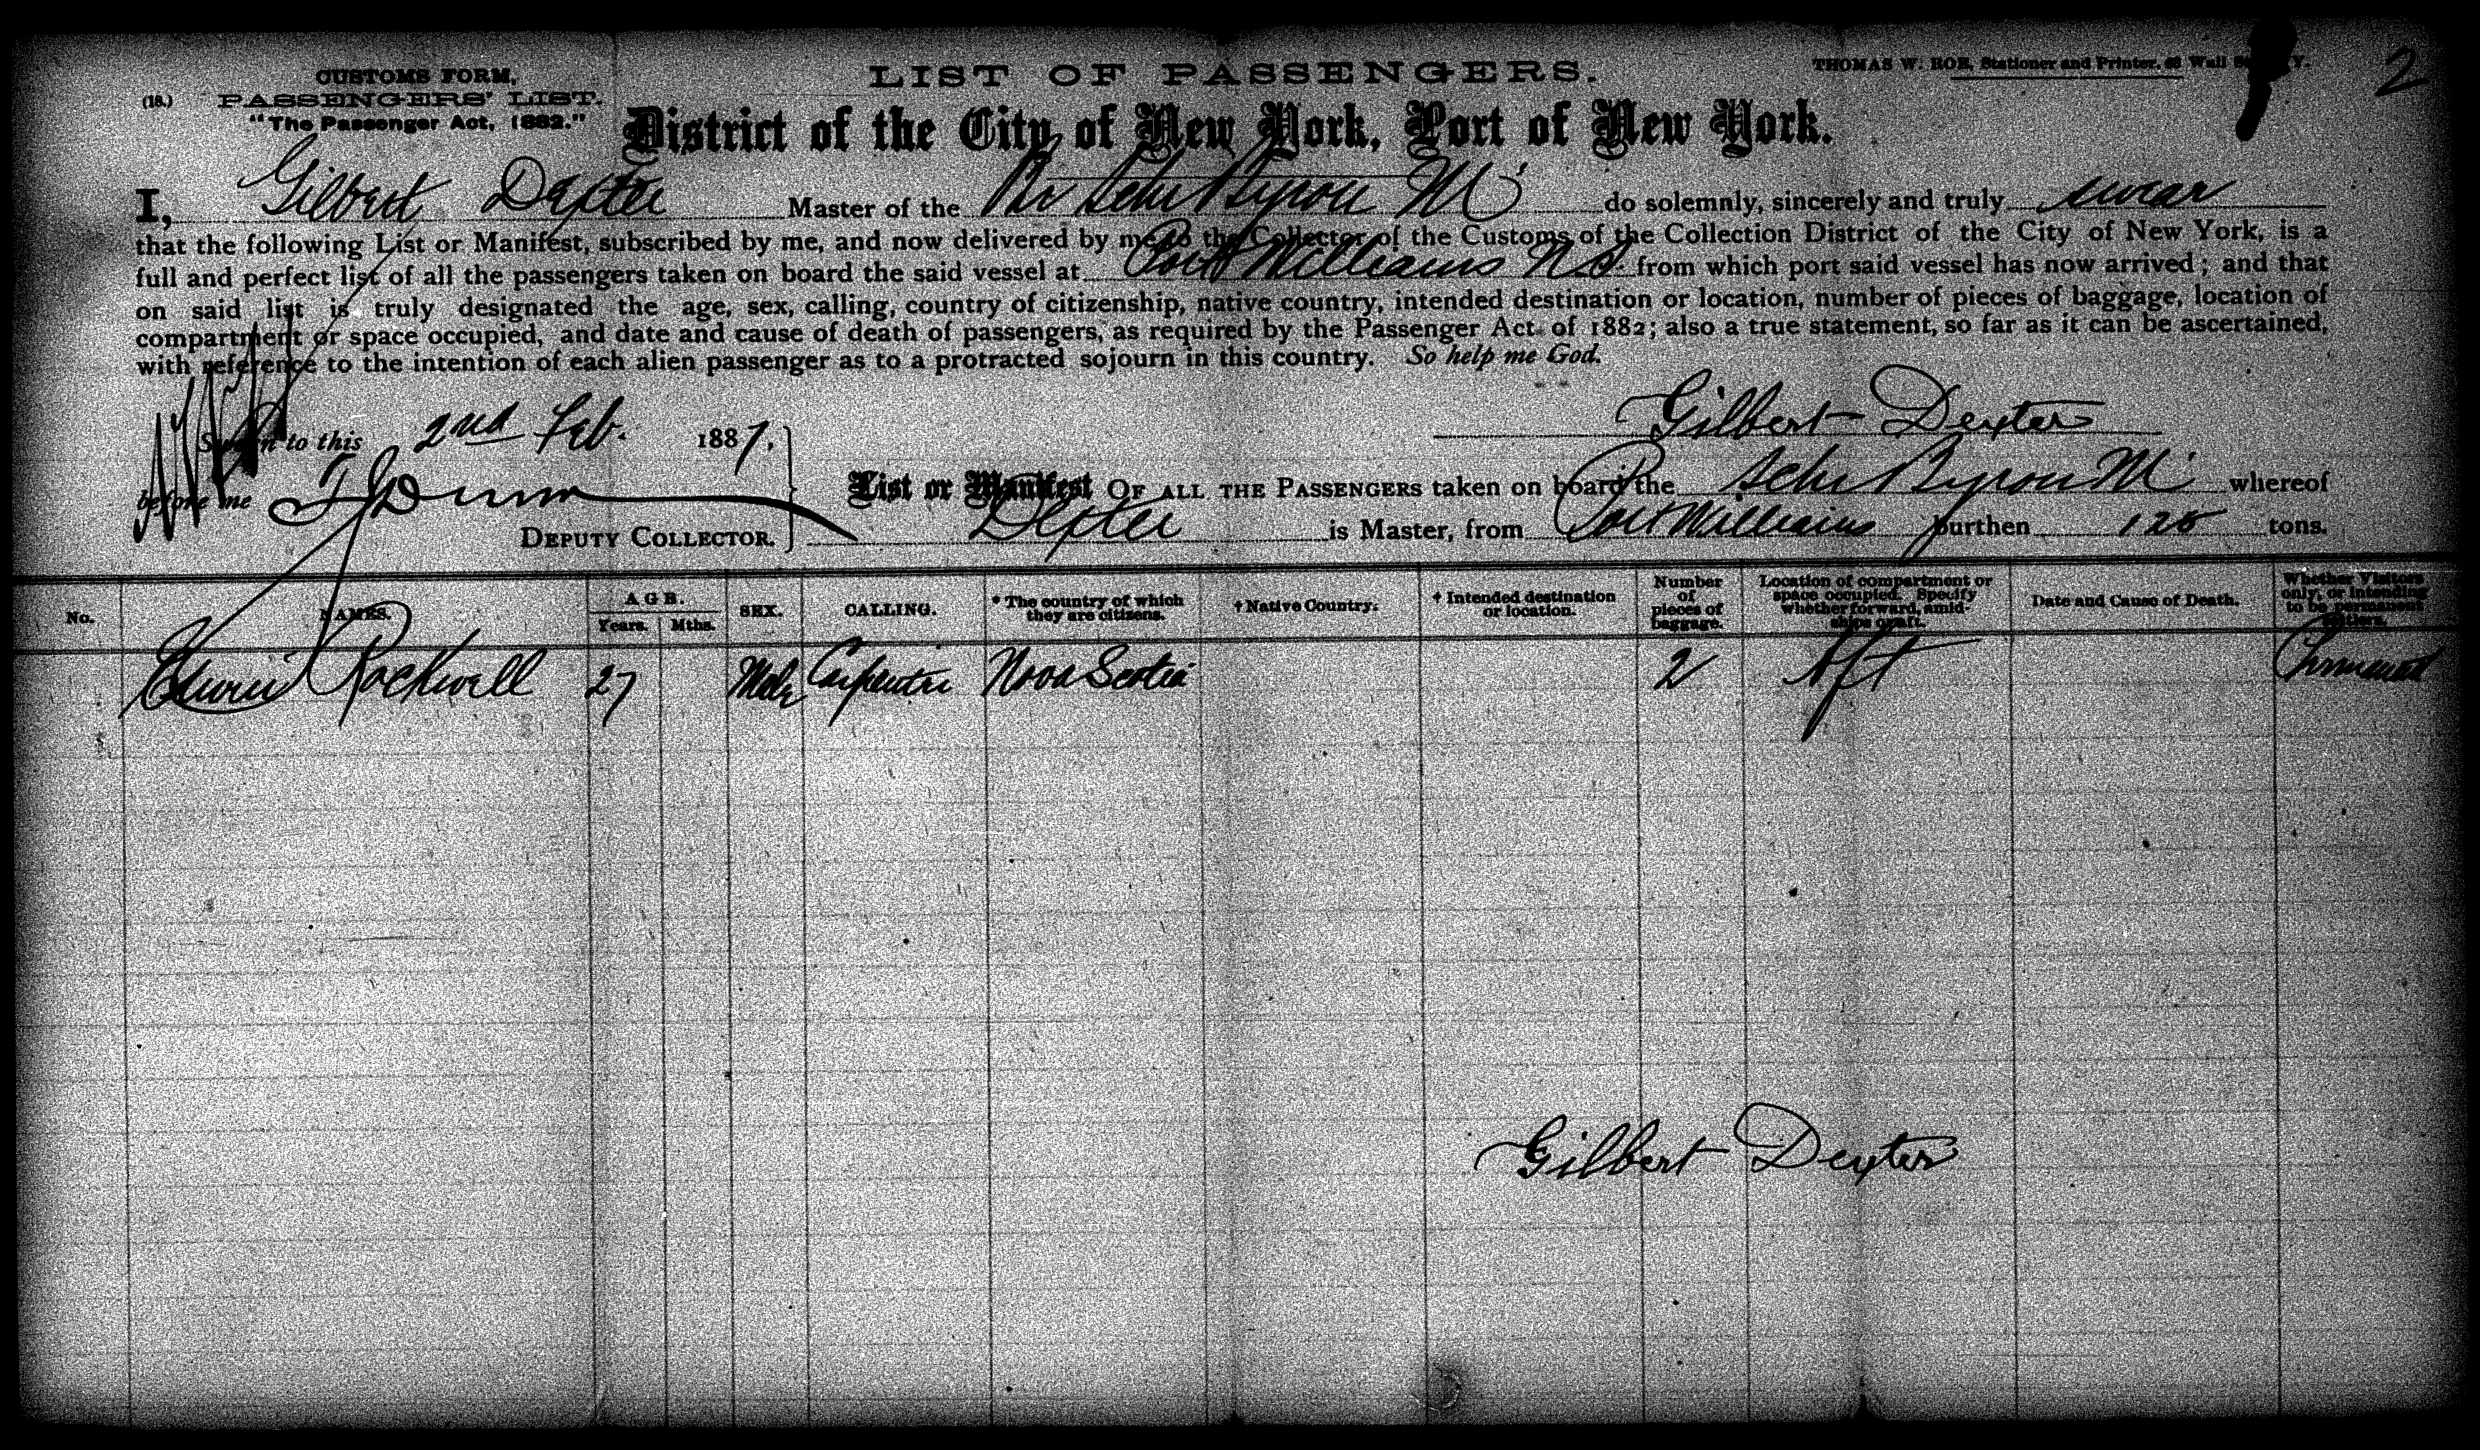 CUSTOMS FORM,
(18.) PASSENGERS' LIST.
"The Passenger Act, 1882."
LIST OF PASSENGERS.
THOMAS W. ROE, Stationer and Printer, Wall
2
District of the City of New York, Port of New York.
I, Gilbert Dexter Master of the Br Schr Byron M do solemnly, sincerely and truly swear
that the following List or Manifest, subscribed by me, and now delivered by me to the Collector of the Customs of the Collection District of the City of New York, is a
full and perfect list of all the passengers taken on board the said vessel at Port Williams N.S. from which port said vessel has now arrived; and that
on said list is truly designated the age, sex, calling, country of citizenship, native country, intended destination or location, number of pieces of baggage, location of
compartment or space occupied, and date and cause of death of passengers, as required by the Passenger Act of 1882; also a true statement, so far as it can be ascertained,
with reference to the intention of each alien passenger as to a protracted sojourn in this country. So help me God.
Gilbert Dexter
Sworn to this 2nd Feb. 1887,
before me Dunn
DEPUTY COLLECTOR.
List or Manifest OF ALL THE PASSENGERS taken on board the Schr Byron M whereof
Dexter is Master, from Port Williams burthen 125 tons.
No. NAMES. AGE. Years. Mths. SEX. CALLING. * The country of which they are citizens. † Native Country. † Intended destination or location. Number of pieces of baggage. Location of compartment or space occupied. Specify whether forward, amidships or aft. Date and Cause of Death. Whether Visitors only, or intending to be permanent settlers.
Edwin Rockwell 27 Male Carpenter Nova Scotia 2 Aft Permanent
Gilbert Dexter